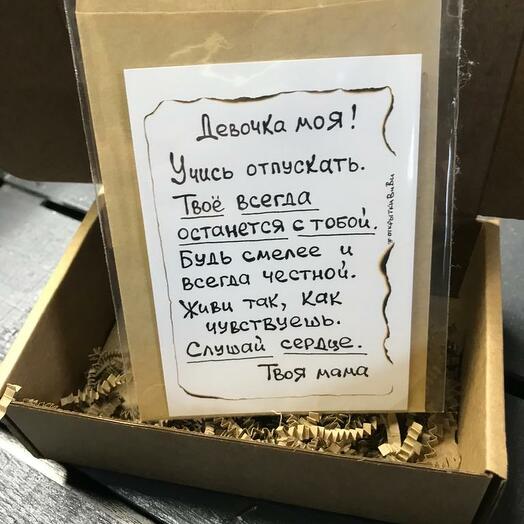 Девочка моя!
Учись отпускать.
Твоё всегда
останется с тобой.
Будь смелее и
всегда честной.
Живи так, как
чувствуешь.
Слушай сердце.
Твоя мама
#открыткиВиВи